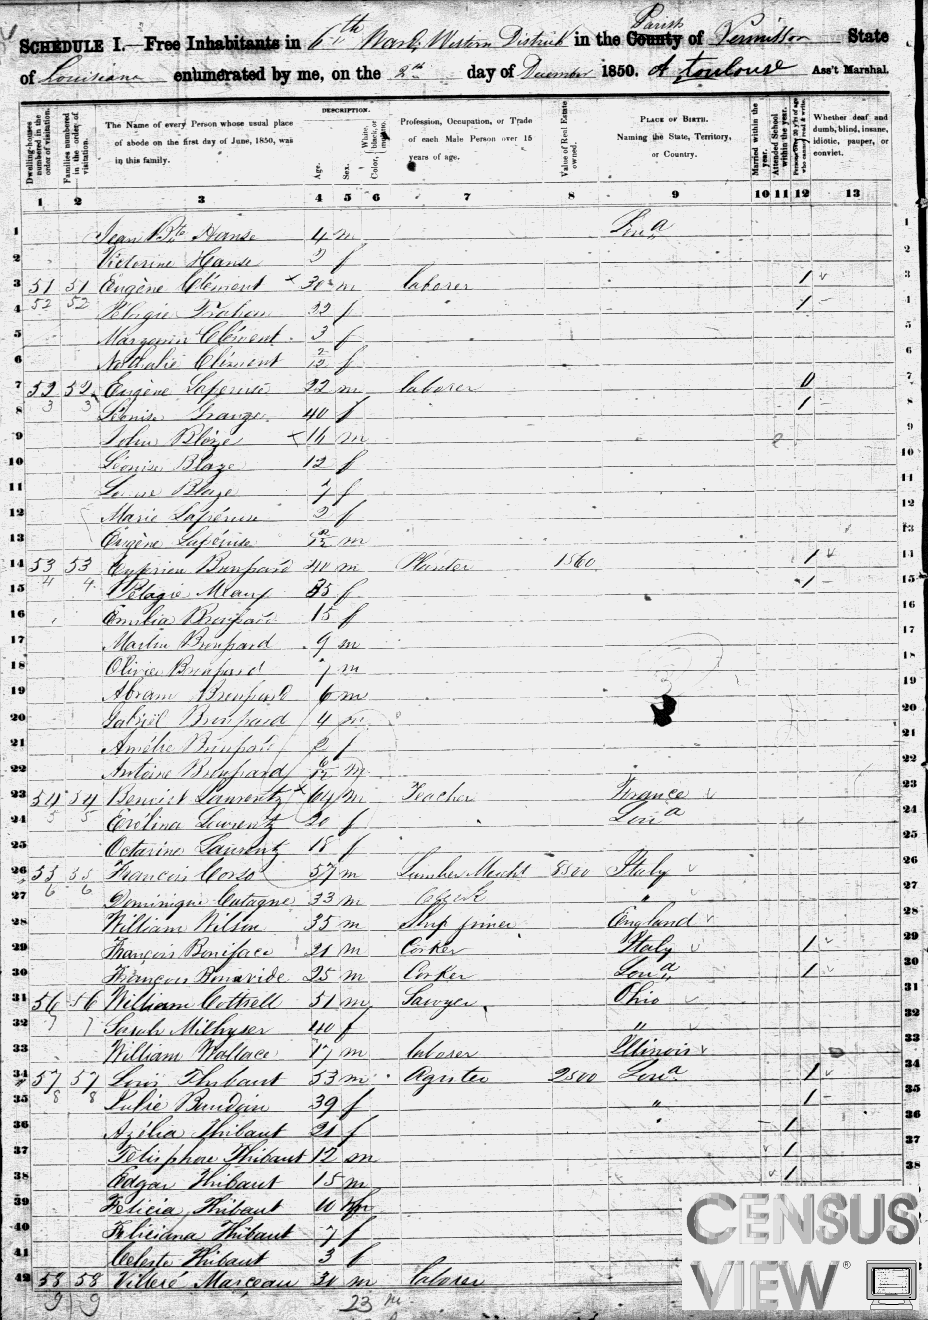 SCHEDULE I.—Free Inhabitants in 6th Ward, Western District in the County Parish of Vermillon State
of Louisiana enumerated by me, on the 2th day of December 1850. A Toulouse Ass't Marshal.
Dwelling-houses numbered in the order of visitation.
Families numbered in the order of visitation.
The Name of every Person whose usual place of abode on the first day of June, 1850, was in this family.
DESCRIPTION.
Age.
Sex.
White, black, or mulatto. Color,
Profession, Occupation, or Trade of each Male Person over 15 years of age.
Value of Real Estate owned.
PLACE OF BIRTH. Naming the State, Territory, or Country.
Married within the year.
Attended School within the year.
Persons over 20 y'rs of age who cannot read & write.
Whether deaf and dumb, blind, insane, idiotic, pauper, or convict.
1 2 3 4 5 6 7 8 9 10 11 12 13
1 Jean Bte Hanse 4 m Loua 1
2 Victorine Hanse f 2
3 51 51 Eugène Clément x 30 m laborer 1 3
4 52 52 Pélagie Trahan 22 f 1 4
5 Clément 3 f 5
6 Nathalie Clément 2/12 f 6
7 52 52 Eugène Laperuse 22 m laborer 0 7
8 3 3 Léonise Grange 40 f 1 8
9 John Blaze x 16 m 9
10 Léonise Blaze 12 f 10
11 Blaze 7 f 11
12 Marie Lapéruse 2 f 12
13 Eugène Lapéruse m 13
14 53 53 Cyprien Broupard 40 m Planter 1560 1 14
15 4 4 Pelagie Meaux 35 f 1 15
16 Emilia Broupard 15 f 16
17 Martin Broupard 9 m 17
18 Olivier Broupard 7 m 18
19 Abram Broupard 6 m 19
20 Gabriël Broupard 4 m 20
21 Amélie Broupard 2 f 21
22 Antoine Broupard m 22
23 54 54 Benoist Laurentz x 64 m Teacher France 23
24 5 5 Laurentz 20 f Loua 24
25 Octavine Laurentz 18 f 25
26 55 55 Francois Corso 37 m Lumber Mercht 8500 Italy 26
27 6 6 Dominique Catagne 33 m " 27
28 William Wilson 35 m Ship joiner England 28
29 François Boniface 21 m Corker Italy 1 29
30 François Bonavide 25 m Corker Loua 1 30
31 56 56 William Cottrell 51 m Sawyer Ohio 31
32 7 7 Sarah 40 f " 32
33 William Wallace 17 m laborer Illinois 33
34 57 57 Louis Thibaut 53 m 2500 Loua 1 34
35 8 8 Julie Baudoin 39 f " 1 35
36 Azélia Thibaut 21 f " 1 36
37 Télisphore Thibaut 12 m 1 37
38 Edgar Thibaut 15 m 1 38
39 Félicia Thibaut 10 f
40 Féliciana Thibaut 7 f
41 Céleste Thibaut 3 f
42 58 58 Villeré Marceau 30 m laborer
9 9
23 m
CENSUS
VIEW®